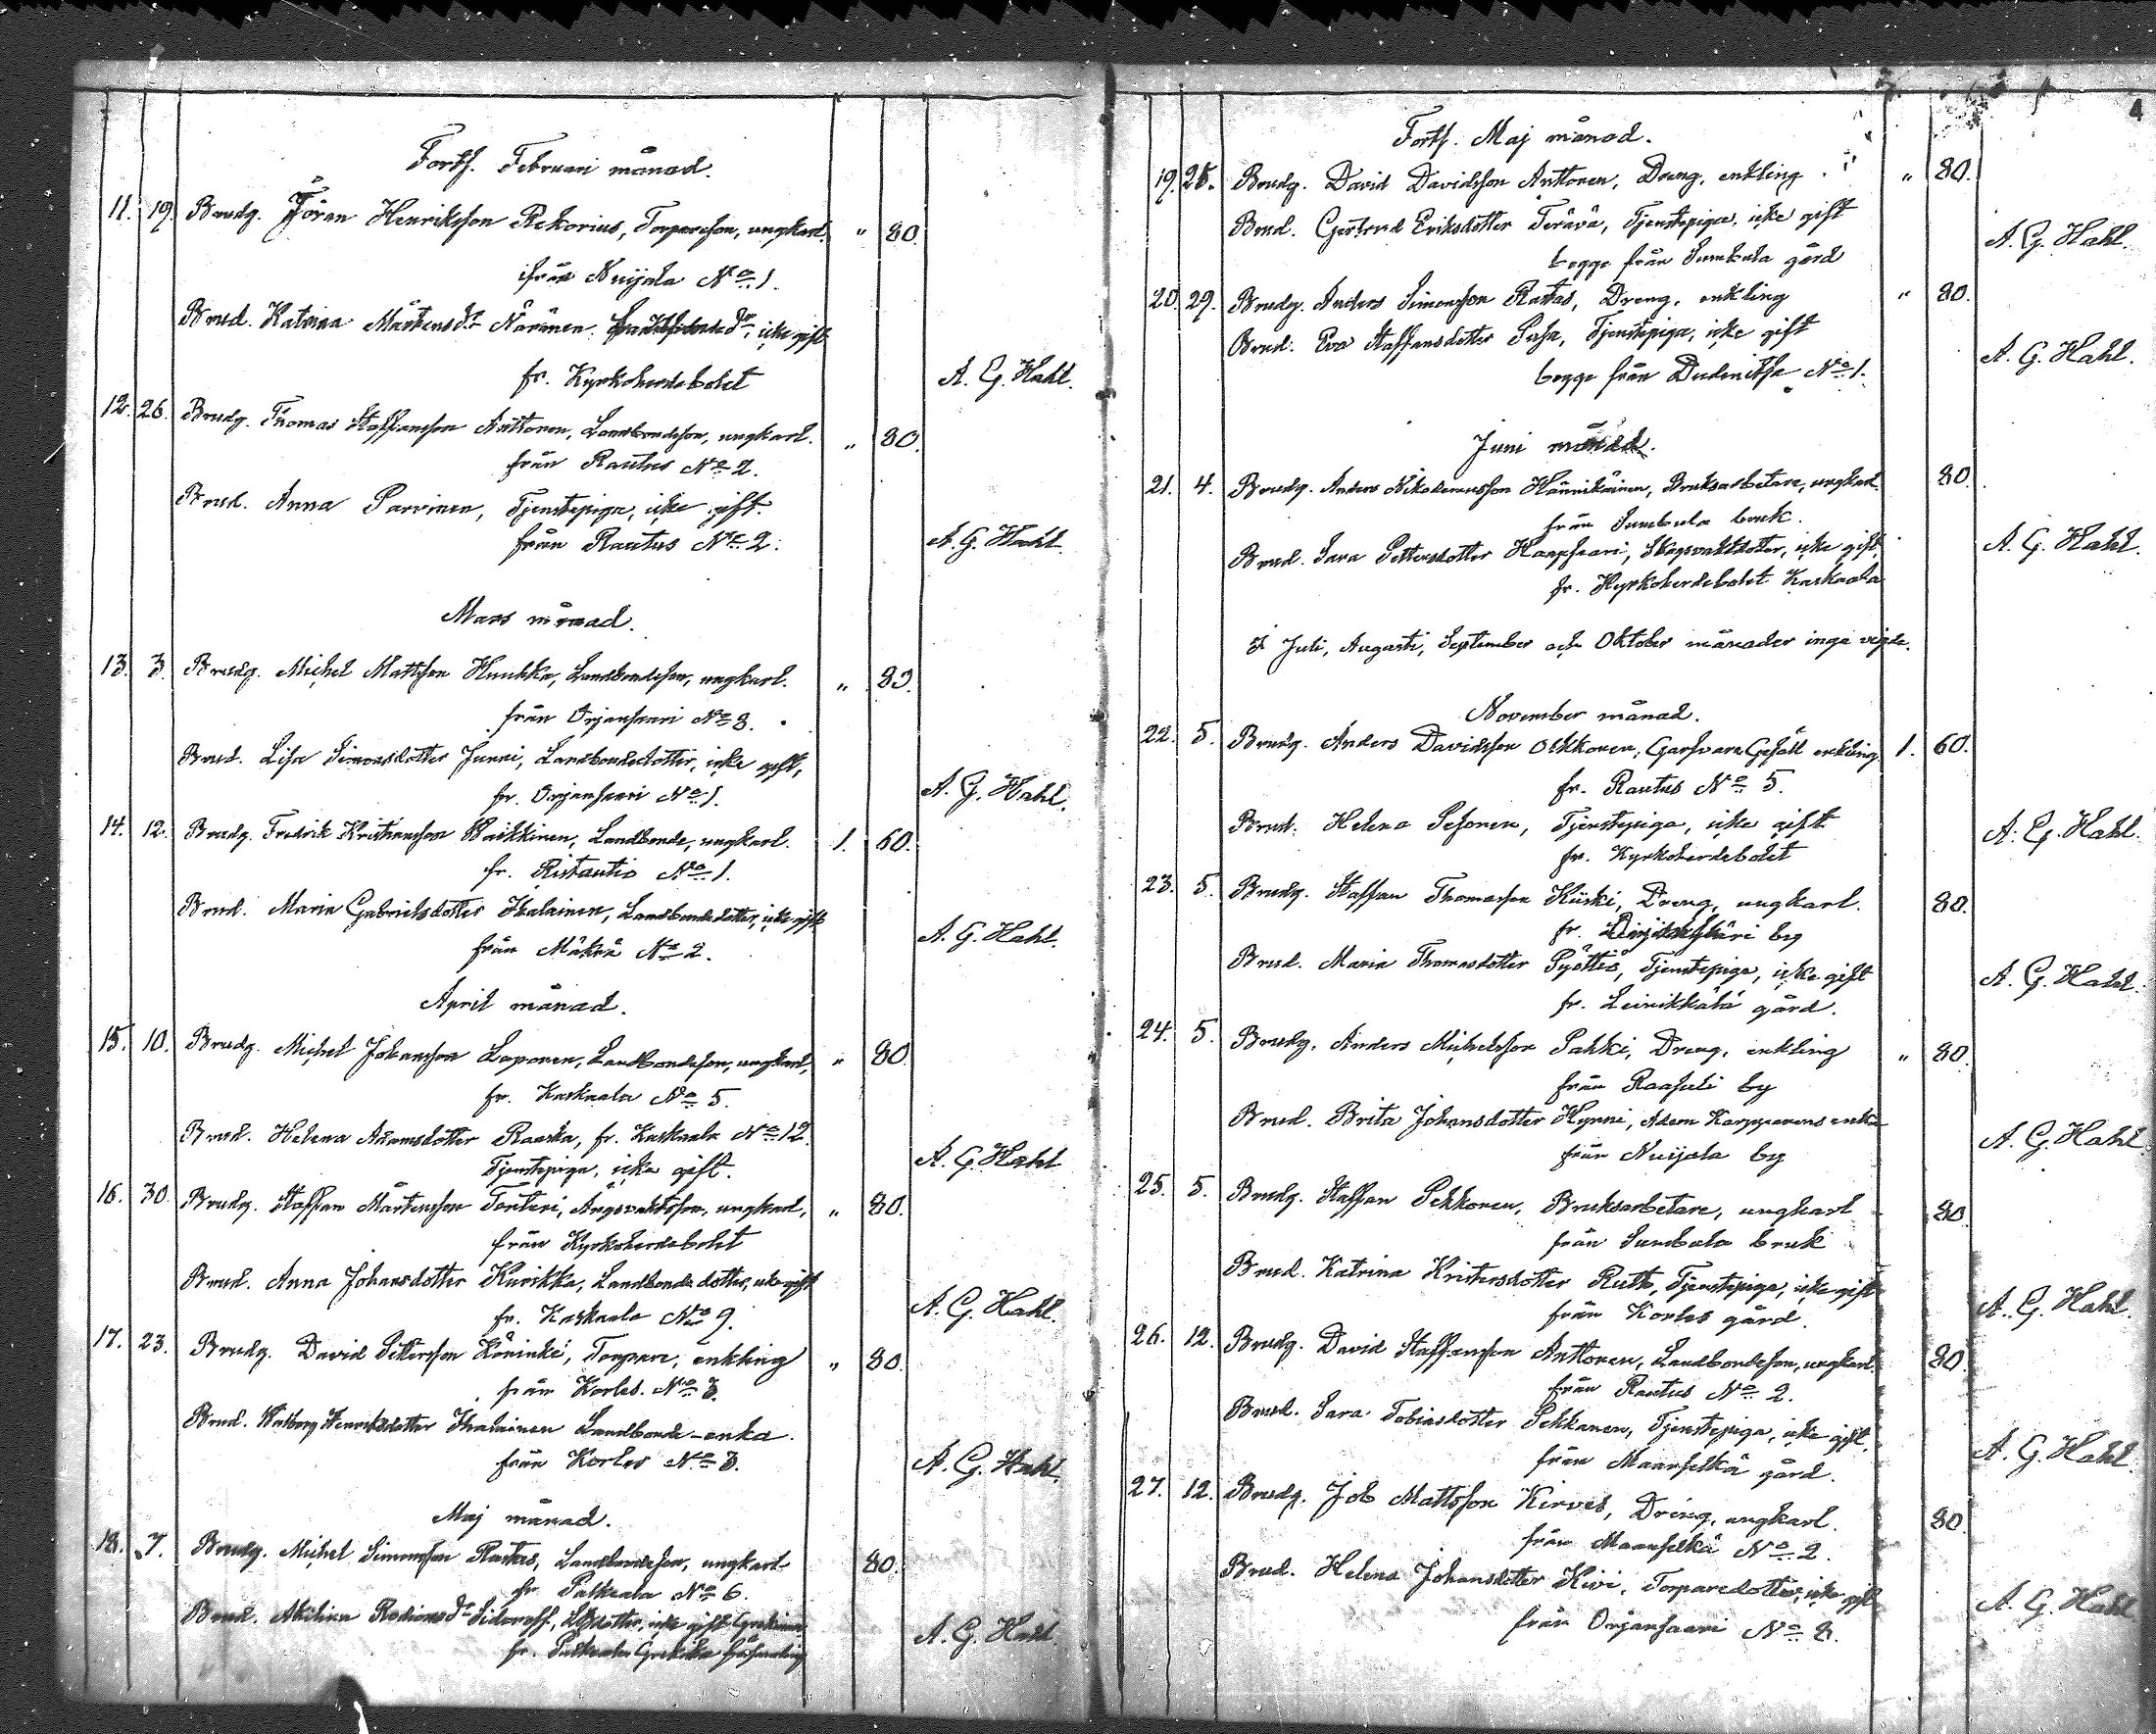 Forts. Februari månad.
11. 19. Brudg. Jöran Henriksson Rekorius, Torpareson, ungkarl. " 80.
ifrån Nuijala No 1.
Brud. Katrina Mårtensdr Närinen icke gift
fr. Kyrkoherdebolet A. G. Hahl.
12. 26. Brudg. Thomas Staffansson Anttonen, Landbondeson, ungkarl. " 80.
från Rautus No 2.
Brud. Anna Parvinen, Tjenstepiga, icke gift.
från Rautus No 2. A. G. Hahl
Mars månad.
13. 3. Brudg. Michel Mattsson Huuhka, Landbondeson, ungkarl. " 80.
från Orjansaari No 3.
Brud. Lisa Simonsdotter Junni, Landbondedotter, icke gift,
fr. Orjansaari No 1. A. G. Hahl.
14. 12. Brudg. Fredrik Kristiansson Waikkinen, Landbonde, ungkarl. 1. 60.
fr. Ristautio No 1.
Brud. Maria Gabrielsdotter Ikalainen, Landbondedotter, icke gift
från Mäkrä No 2. A. G. Hahl.
April månad.
15. 10. Brudg. Michel Johansson Loponen, Landbondeson, ungkarl, " 80.
fr. Kaskaala No 5.
Brud. Helena Adamsdotter Raaska, fr. Kaskaala No 12.
Tjenstepiga, icke gift. A. G. Hahl
16. 30. Brudg. Staffan Mårtensson Tontéri, Ängsvaktsson, ungkarl, " 80.
från Kyrkoherdebolet
Brud. Anna Johansdotter Kurikka, Landbondedotter, icke gift
fr. Kaskaala No 9. A. G. Hahl.
17. 23. Brudg. David Pettersson Köninki, Torpare, enkling " 80.
från Korles. No 3.
Brud. Walborg Henriksdotter Ihalainen Landbonde-enka.
från Korles No 3. A. G. Hahl.
Maj månad.
18. 7. Brudg. Michel Simonsson Rastas, Landbondeson, ungkarl 80.
fr. Palkeala No 6.
Brud. Akilina Rodionsdr Sidoroff, icke gift
fr. Palkeala Grekiska församling A. G. Hahl.
Forts. Maj månad.
19. 25. Brudg. David Davidsson Anttonen, Dreng, enkling " 80.
Brud. Gertrud Eriksdotter Terävä, Tjenstepiga, icke gift
begge från Sumbula gård A. G. Hahl.
20. 29. Brudg. Anders Simonsson Rastas, Dreng, enkling " 80.
Brud. Eva Staffansdotter Susa, Tjenstepiga, icke gift
begge från Dudenitse No 1. A. G. Hahl.
Juni månad.
21. 4. Brudg. Anders Nikodemusson Hännikäinen, Bruksarbetare, ungkarl. 80.
från Sumbula bruk.
Brud. Sara Pettersdotter Haapsaari, Skogsvaktdotter, icke gift,
fr. Kyrkoherdebolet Kaskaala A. G. Hahl.
I Juli, Augusti, September och Oktober månader inga vigde.
November månad.
22. 5. Brudg. Anders Davidsson Okkonen, Garfvare Gesäll enkling 1. 60.
fr. Rautus No 5.
Brud. Helena Pesonen, Tjenstepiga, icke gift
fr. Kyrkoherdebolet A. G. Hahl.
23. 5. Brudg. Staffan Thomasson Kiiski, Dreng, ungkarl. 80.
fr. by
Brud. Maria Thomasdotter Pyöttiö, Tjenstepiga, icke gift
fr. Leinikkälä gård. A. G. Hahl.
24. 5. Brudg. Anders Michelsson Pahki, Dreng, enkling " 80.
från Raasuli by
Brud. Brita Johansdotter Hynni, Adam Karppanens enka
från Nuijala by A. G. Hahl
25. 5. Brudg. Staffan Pekkonen, Bruksarbetare, ungkarl 80.
från Sumbula bruk
Brud. Katrina Kristersdotter Ruth, Tjenstepiga, icke gift
från Korles gård. A. G. Hahl.
26. 12. Brudg. David Staffansson Anttonen, Landbondeson, ungkarl. 80.
från Rautus No 2.
Brud. Sara Tobiasdotter Pekkanen, Tjenstepiga, icke gift,
från Maanselkä gård. A. G. Hahl.
27. 12. Brudg. Job Mattsson Kirves, Dreng, ungkarl. 80.
från Maanselkä No 2.
Brud. Helena Johansdotter Kivi, Torparedotter, icke gift
från Orjansaari No 8. A. G. Hahl